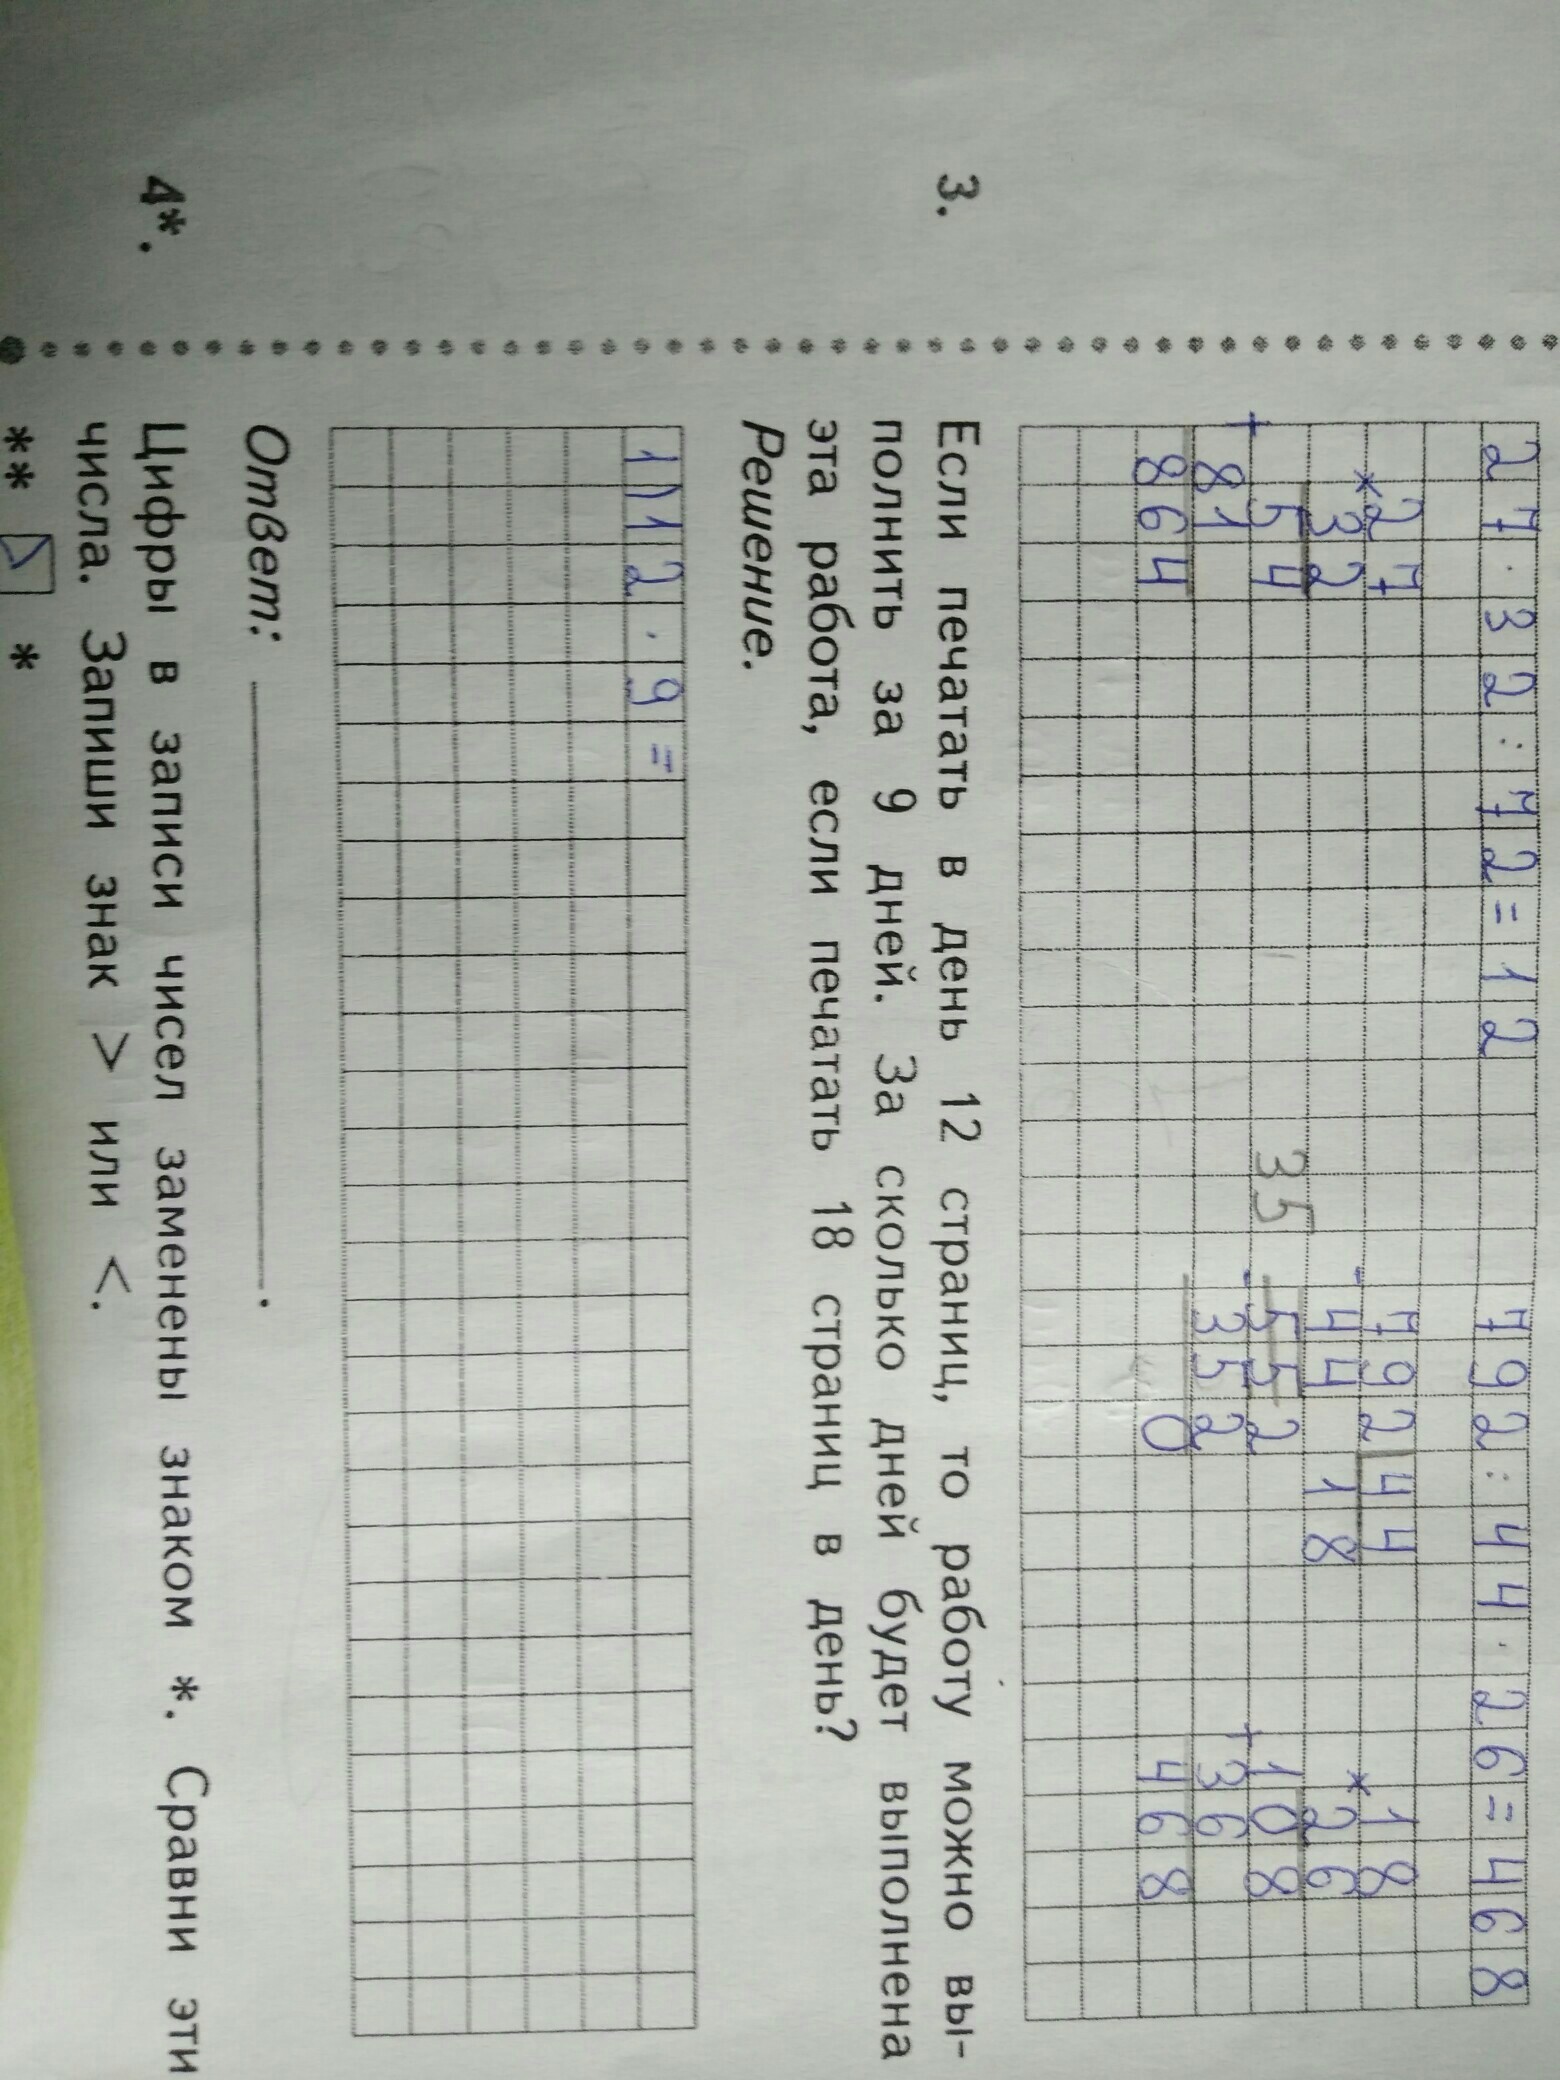 27·32:72=12 792:44·26=468
27 792 44 18
*32 -44 18 *26
54 35 552 108
+81 -352 +36
864 0 468
3. Если печатать в день 12 страниц, то работу можно вы-
полнить за 9 дней. За сколько дней будет выполнена
эта работа, если печатать 18 страниц в день?
Решение.
1)12·9=
Ответ: .
4*. Цифры в записи чисел заменены знаком *. Сравни эти
числа. Запиши знак > или <.
** > *